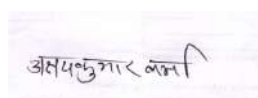 अक्षयकुमार वर्मा